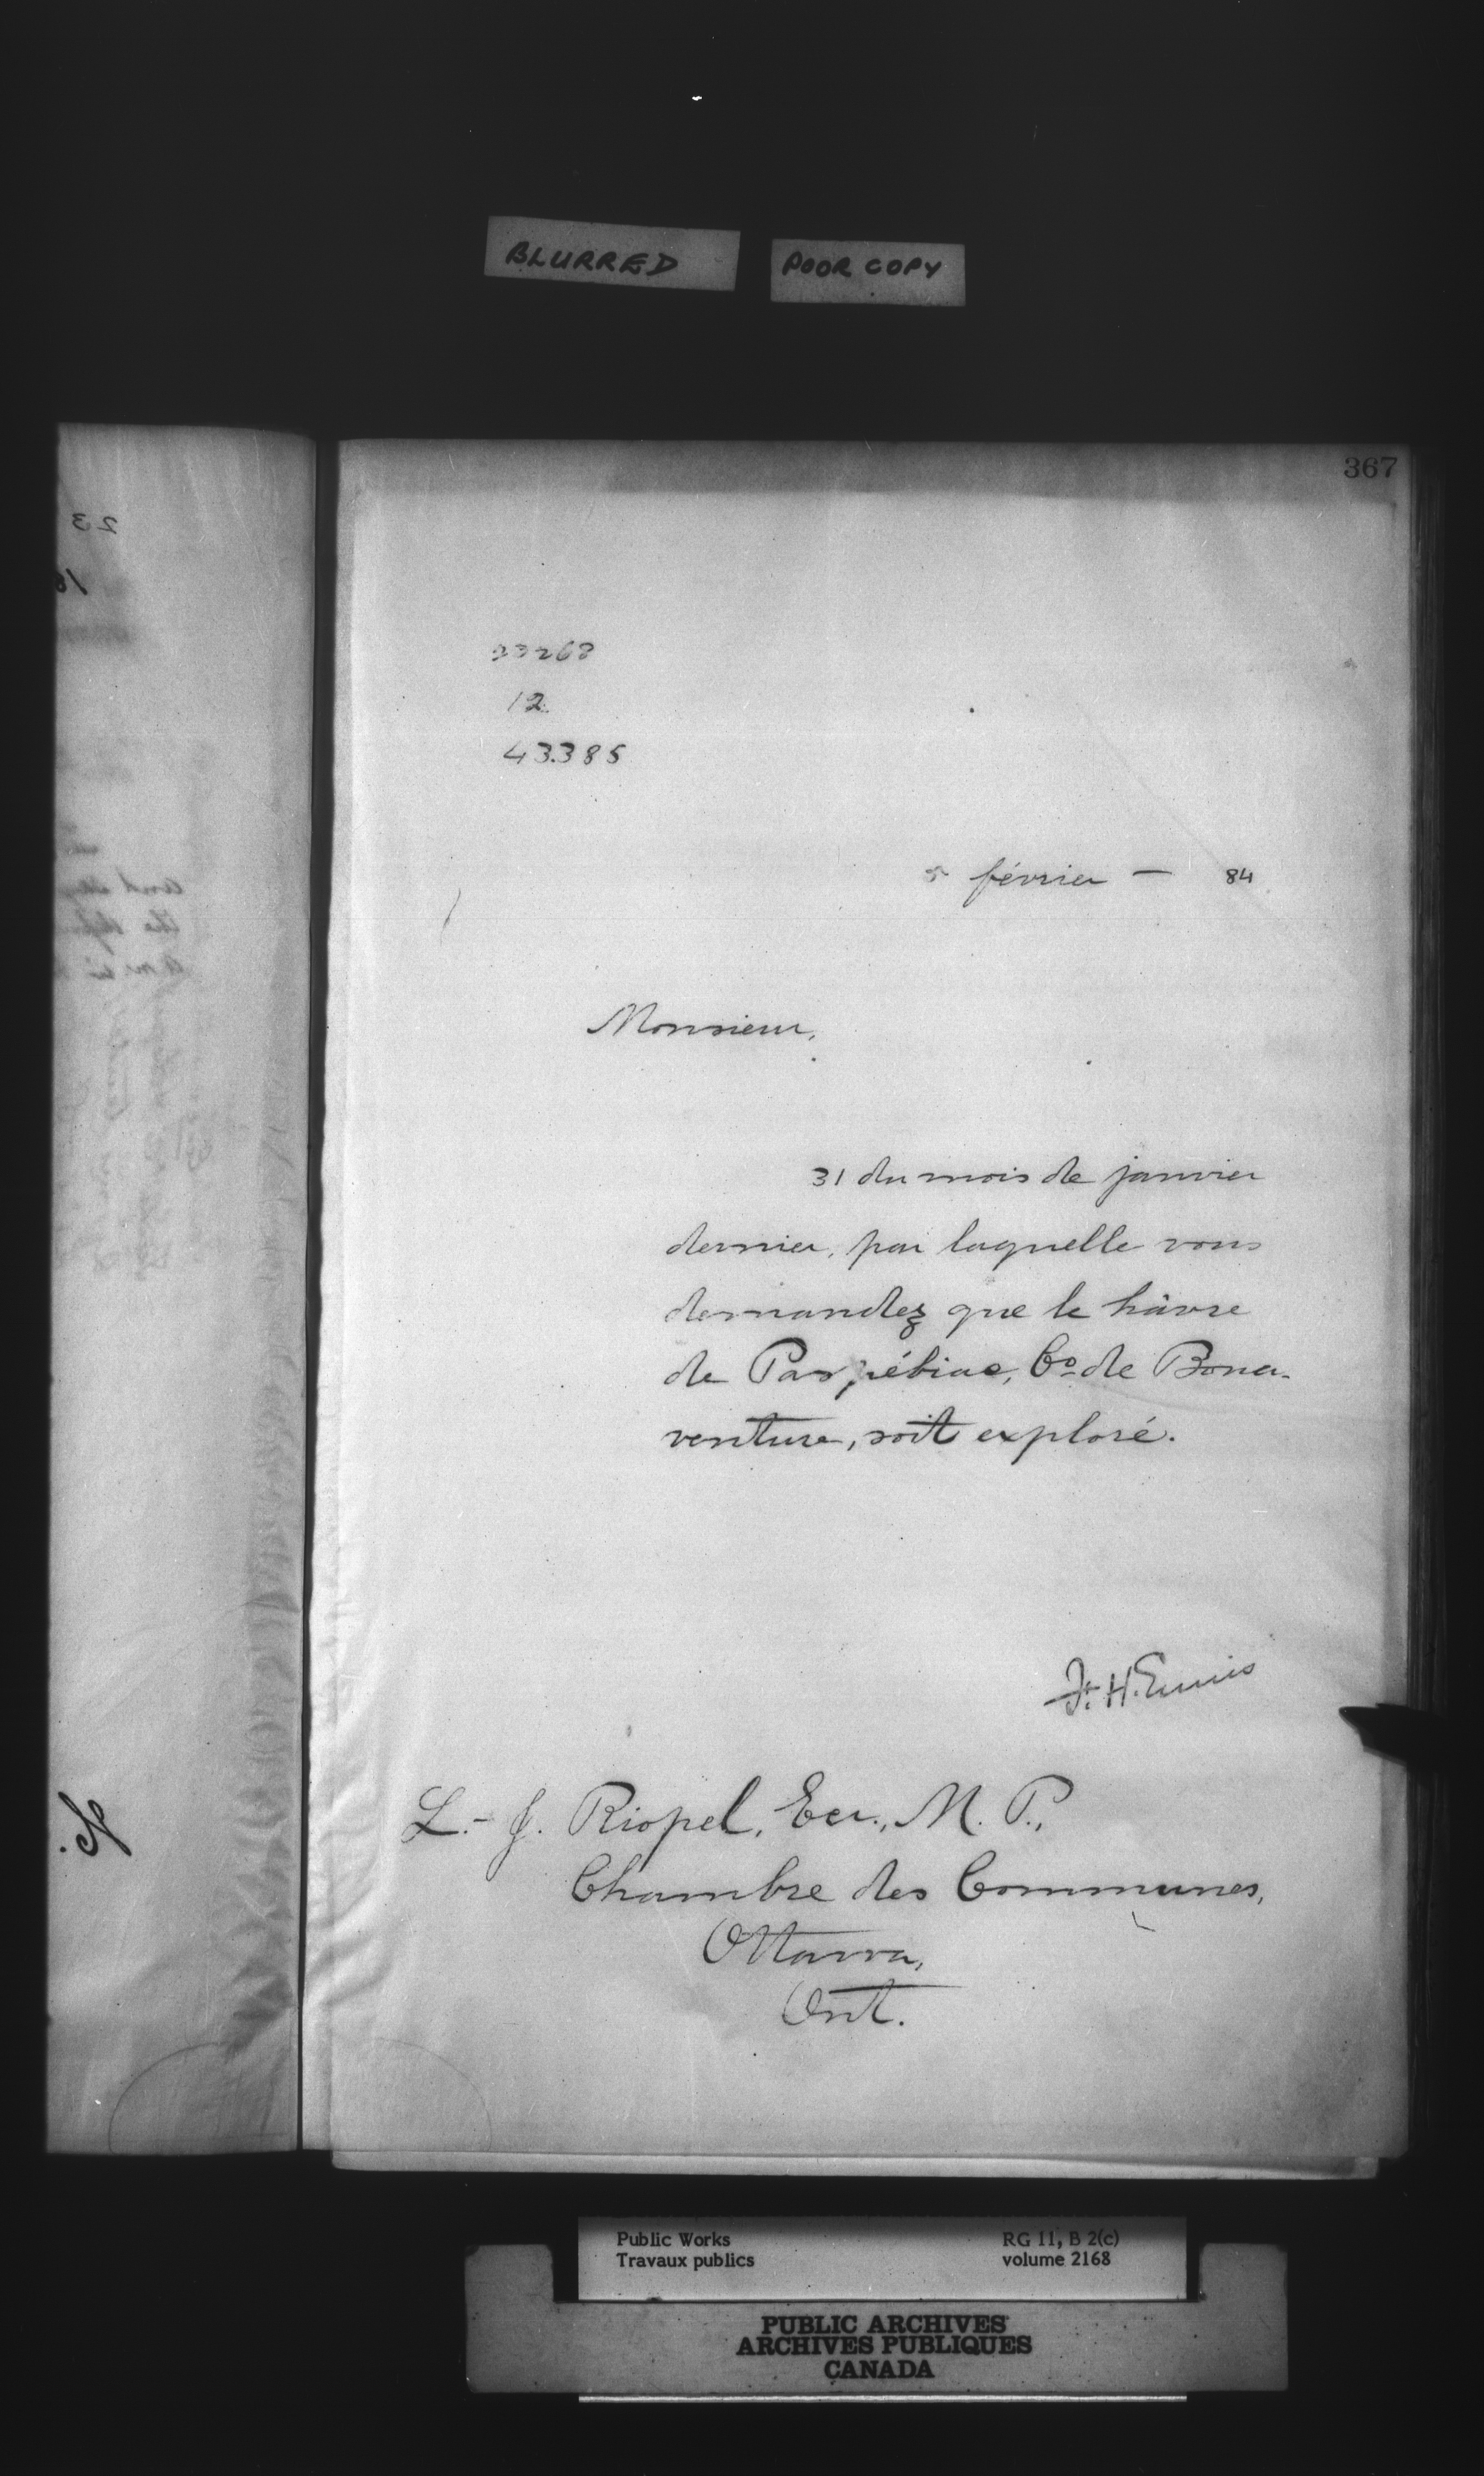 BLURRED
POOR COPY
367
12
43385
5 février — 84
Monsieur,
31 du mois de janvier
dernier, par laquelle vous
demandez que le hâvre
de Paspébiac, Co de Bona-
venture, soit exploré.
F. H. Ennis
L.-J. Riopel, Ecr., M. P.,
Chambre des Communes,
Ottawa,
Ont.
Public Works
Travaux publics
RG 11, B 2(c)
volume 2168
PUBLIC ARCHIVES
ARCHIVES PUBLIQUES
CANADA